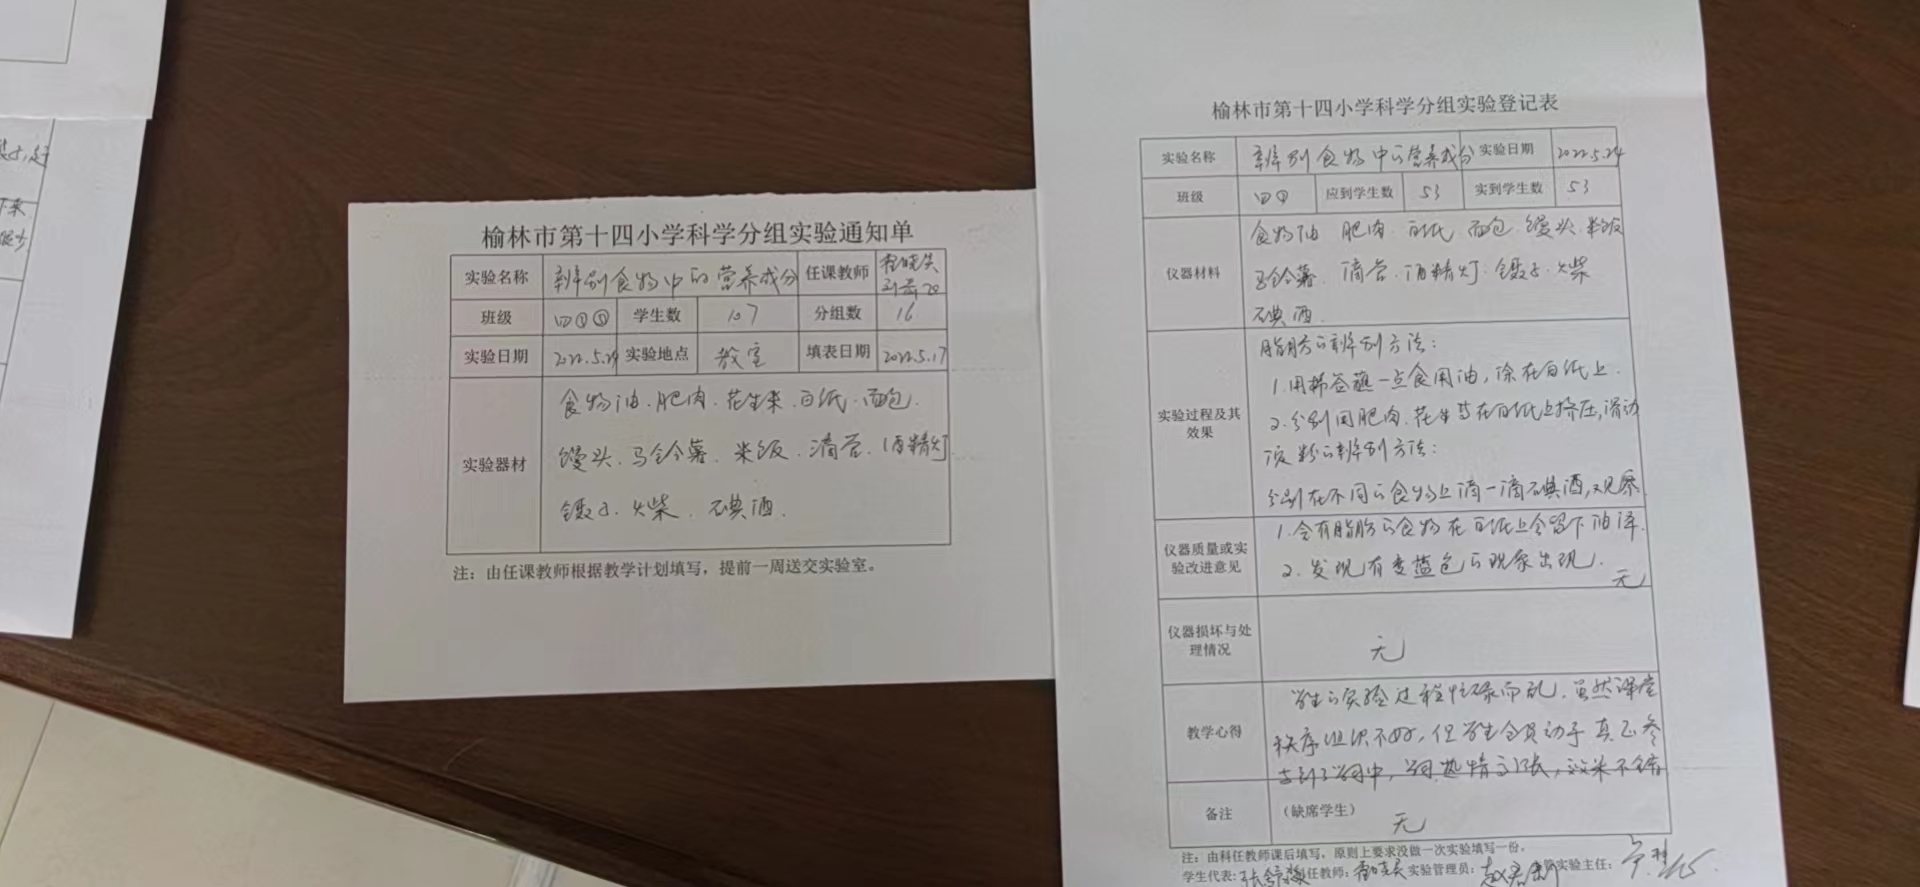 下来
榆林市第十四小学科学分组实验通知单
实验名称 辨别食物中的营养成分 任课教师
班级 四 学生数 107 分组数 16
实验日期 2022.5.24 实验地点 教室 填表日期 2022.5.17
实验器材
食物油、肥肉、花生米、白纸、面包、
馒头、马铃薯、米饭、滴管、酒精灯
镊子、火柴、碘酒.
注：由任课教师根据教学计划填写，提前一周送交实验室。
榆林市第十四小学科学分组实验登记表
实验名称 辨别食物中的营养成分 实验日期 2022.5.24
班级 四 应到学生数 53 实到学生数 53
仪器材料
食物油 肥肉、白纸、面包、馒头、米饭
马铃薯、滴管、酒精灯、镊子、火柴
碘酒.
实验过程及其
效果
脂肪的辨别方法：
1.用棉签蘸一点食用油，涂在白纸上.
2.分别用肥肉、花生等在白纸上挤压，滑动
淀粉的辨别方法：
分别在不同的食物上滴一滴碘酒，观察
仪器质量或实
验改进意见
1.含有脂肪的食物在白纸上会留下油泽.
2.发现有变蓝色的现象出现.
无
仪器损坏与处
理情况
无
教学心得
学生的实验过程忙碌而乱，虽然课堂
秩序组织不好，但学生全员动手真正参
与到了学习中，学习热情高涨，效果不错
备注 （缺席学生）
无
注：由科任教师课后填写，原则上要求没做一次实验填写一份。
学生代表: 任教师: 实验管理员: 管实验主任: